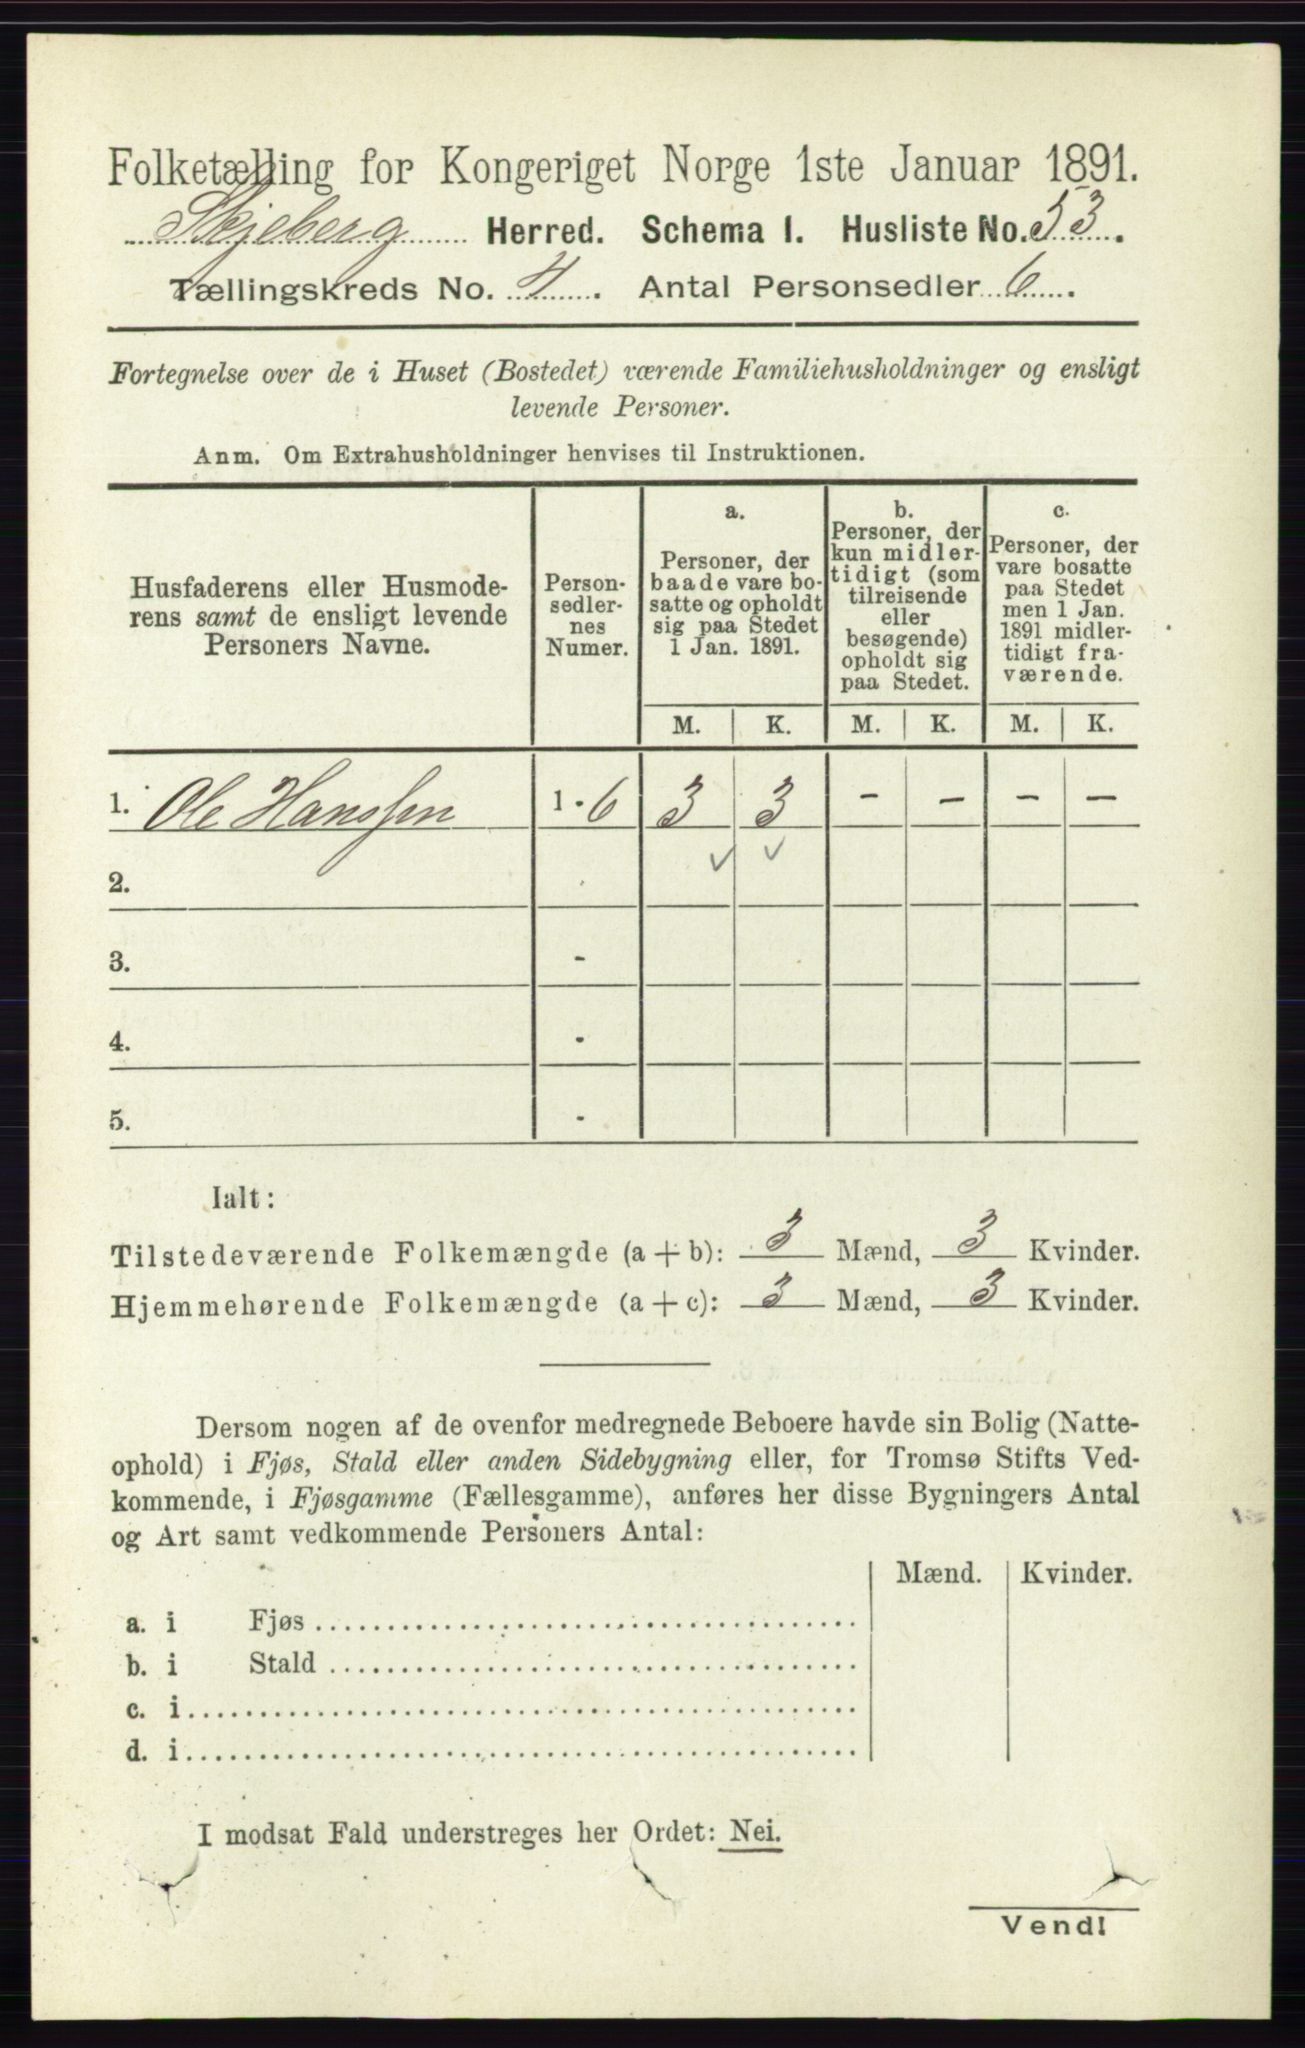 Folketælling for Kongeriget Norge 1ste Januar 1891.
Skjeberg Herred. Schema I. Husliste No. 53.
Tællingskreds No. 4. Antal Personsedler 6.
Fortegnelse over de i Huset (Bostedet) værende Familiehusholdninger og ensligt
levende Personer.
Anm. Om Extrahusholdninger henvises til Instruktionen.
Husfaderens eller Husmode-
rens samt de ensligt levende
Personers Navne.
Person-
sedler-
nes
Numer.
a.
Personer, der
baade vare bo-
satte og opholdt
sig paa Stedet
1 Jan. 1891.
b.
Personer, der
kun midler-
tidigt (som
tilreisende
eller
besøgende)
opholdt sig
paa Stedet.
c.
Personer, der
vare bosatte
paa Stedet
men 1 Jan.
1891 midler-
tidigt fra-
værende.
M. K. M. K. M. K.
1. Ole Hanssen 1-6 3 3 - - - -
2.
3. -
4. -
5. -
Ialt:
Tilstedeværende Folkemængde (a+b): 3 Mænd, 3 Kvinder.
Hjemmehørende Folkemængde (a+c): 3 Mænd, 3 Kvinder.
Dersom nogen af de ovenfor medregnede Beboere havde sin Bolig (Natte-
ophold) i Fjøs, Stald eller anden Sidebygning eller, for Tromsø Stifts Ved-
kommende, i Fjøsgamme (Fællesgamme), anføres her disse Bygningers Antal
og Art samt vedkommende Personers Antal:
Mænd. Kvinder.
a. i Fjøs
b. i Stald
c. i
d. i
I modsat Fald understreges her Ordet: Nei.
Vend!